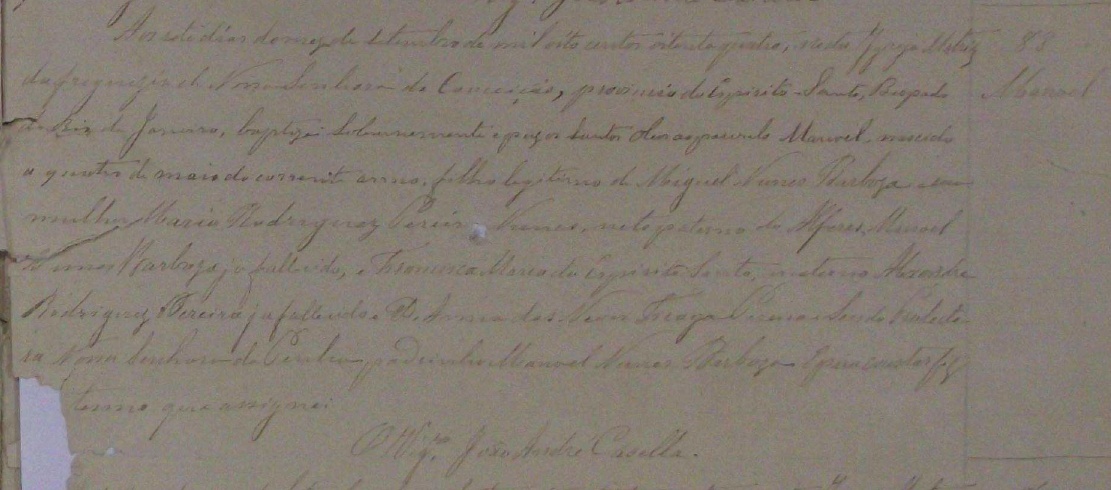 Aos sete dias do mez de setembro de mil oito centos oitenta quatro, nesta Igreja Matriz 88
da freguezia de Nossa Senhora da Conceição, provincia do Espirito-Santo, Bispado Manoel
do Rio de Janeiro, baptizei solemnemente e puz os Santos Oleos ao parvulo Manoel, nascido
a quatro de maio do corrente anno, filho legitimo de Miguel Nunes Barboza e sua
mulher Maria Rodriguez Pereira Nunes, neto paterno do Alferes Manoel
Nunes Barboza, já fallecido, e Francisca Maria do Espirito Santo, materno Alexandre
Rodriguez Pereira já fallecido e D. Anna das Neves Fraga Pereira Sendo Protecto-
ra Nossa Senhora da Penha, padrinho Manoel Nunes Barboza E para constar fiz
termo que assignei
O Vig.ro João André Casella.